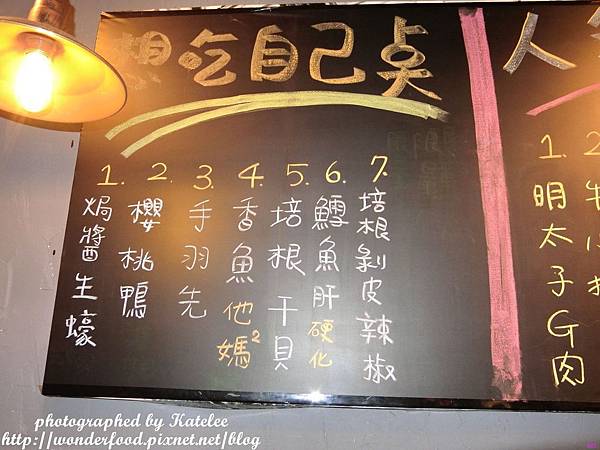 想吃自己点
1. 焗醬生蠔
2. 櫻桃鴨
3. 手羽先
4. 香魚他媽2
5. 培根干貝
6. 鱈魚肝硬化
7. 培根剝皮辣椒
人
1. 明太子G肉
2
photographed by Katelee
http://wonderfood.pixnet.net/blog